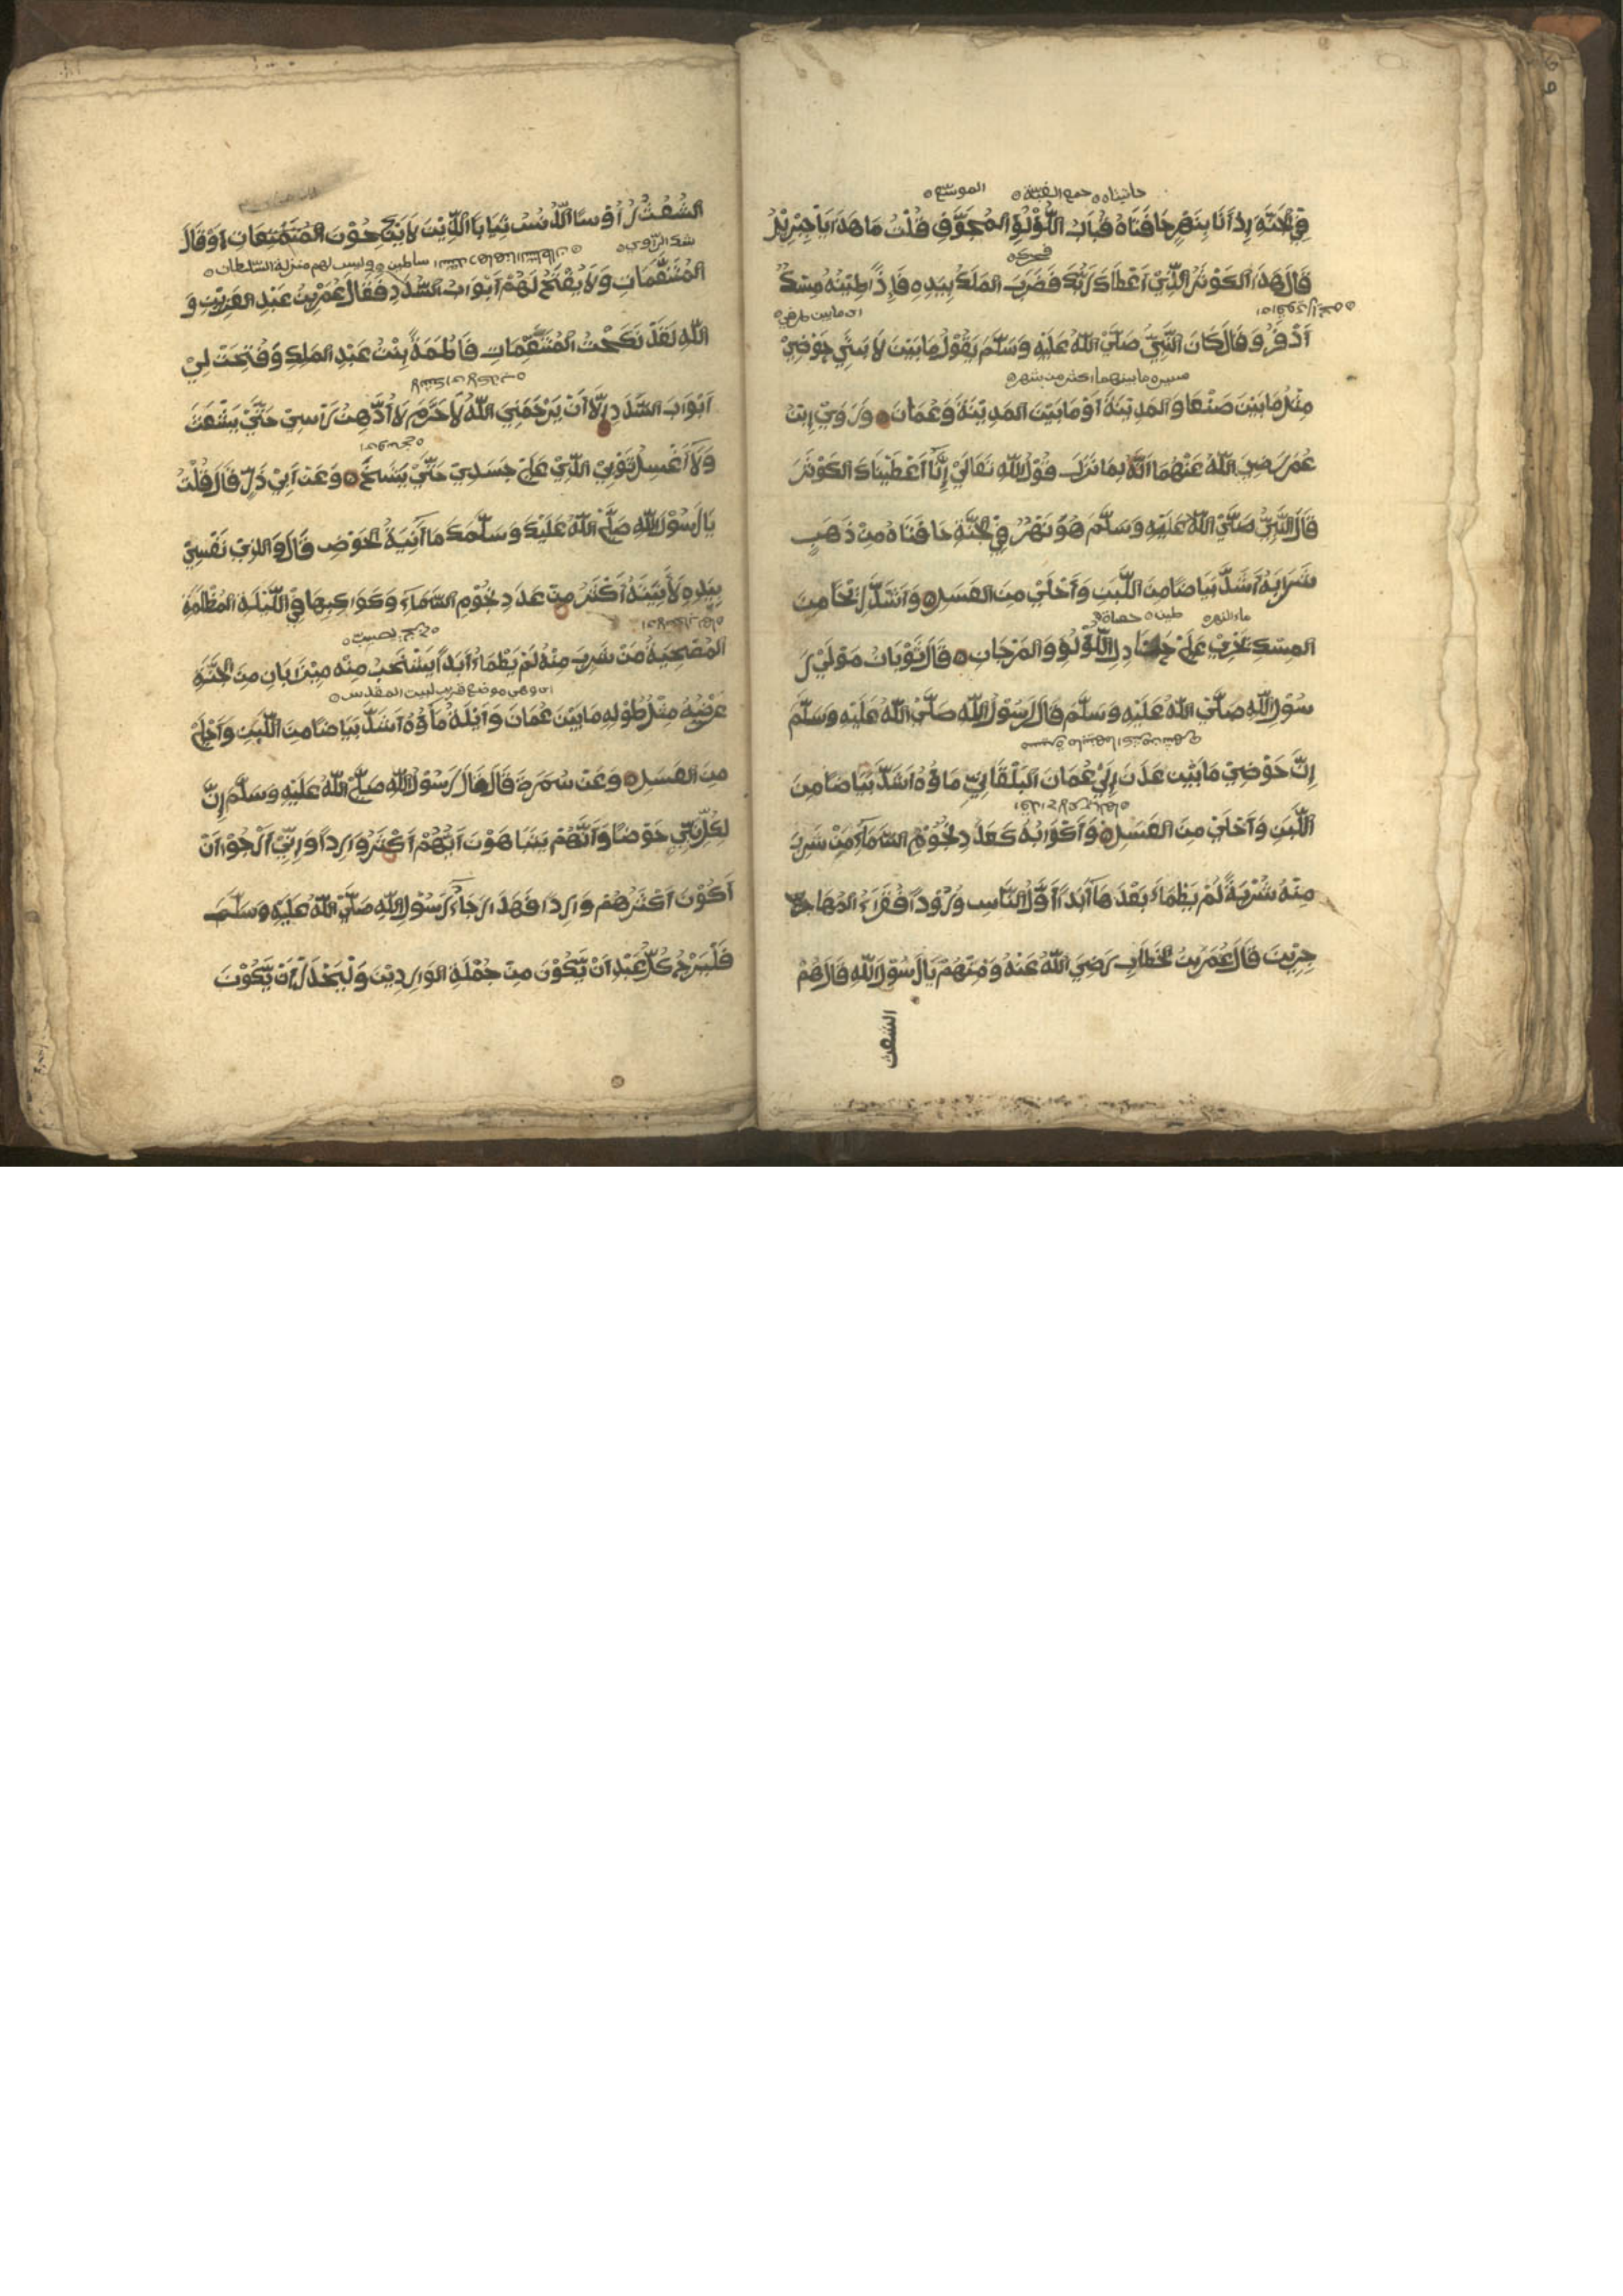 حانيتاه جمع القبة الموسع
فِي الْجَنَّةِ إِذْ أَنَا بِنَهْرٍ حَافَتَاهُ قُبَابُ اللُّؤْلُؤِ الْمُجَوَّفِ قُلْتُ مَا هَذَا يَا جِبْرِيْلُ
قَالَ هَذَا الْكَوْثَرُ الَّذِيْ أَعْطَاكَ رَبُّكَ فَضَرَبَ الْمَلَكُ بِيَدِهِ فَإِذًا طِيْنُهُ مِسْكٌ
اى مابين طرفي
أَذْفَرُ وَقَالَ كَانَ النَّبِيُّ صَلَّيْ اللّٰهُ عَلَيْهِ وَسَلَّمَ يَقُوْلُ مَا بَيْنَ لَابَتَيْ حَوْضِيْ
مسيرة ما بينهما اكثر من شهر
مِثْلُ مَا بَيْنَ صَنْعَا وَالْمَدِيْنَةِ أَوْ مَا بَيْنَ الْمَدِيْنَةِ وَعُمَانَ وَرُوِيَ ابْنُ
عُمَرَ رَضِيَ اللّٰهُ عَنْهُمَا أَنَّهُ لِمَا نَزَلَ قَوْلُ اللّٰهِ تَعَالَيْ إِنَّا أَعْطَيْنَاكَ الْكَوْثَرَ
قَالَ النَّبِيُّ صَلَّيْ اللّٰهُ عَلَيْهِ وَسَلَّمَ هُوَ نَهْرٌ فِيْ الْجَنَّةِ حَافَتَاهُ مِنْ ذَهَبٍ
شَرَابُهُ أَشَدُّ بَيَاضًا مِنَ اللَّبَنِ وَأَحْلَيْ مِنَ الْعَسَلِ وَأَشَدُّ رِيْحًا مِنَ
ماء النهر طين حصاة
الْمِسْكِ يَجْرِيْ عَلَيْ جَنَادِلِ اللُّؤْلُؤِ وَالْمَرْجَانِ وَقَالَ ثَوْبَانُ مَوْلَيْ رَ
سُوْلِ اللّٰهِ صَلَّيْ اللّٰهُ عَلَيْهِ وَسَلَّمَ قَالَ رَسُوْلُ اللّٰهِ صَلَّيْ اللّٰهُ عَلَيْهِ وَسَلَّمَ
إِنَّ حَوْضِيْ مَا بَيْنَ عَدَنَ إِلَيْ عُمَانَ الْبَلْقَاءِ مَاؤُهُ أَشَدُّ بَيَاضًا مِنَ
اللَّبَنِ وَأَحْلَيْ مِنَ الْعَسَلِ وَأَكْوَابُهُ كَعَدَدِ نُجُوْمِ السَّمَاءِ مَنْ شَرِبَ
مِنْهُ شُرْبَةً لَمْ يَظْمَاءْ بَعْدَهَا أَبَدًا أَوَّلُ النَّاسِ وُرُوْدًا فُقَرَاءُ الْمُهَا
جِرِيْنَ فَقَالَ عُمَرُ بْنُ الْخَطَّابِ رَضِيَ اللّٰهُ عَنْهُ وَمَنْ هُمْ يَا رَسُوْلَ اللّٰهِ قَالَ هُمْ
الشعث
الشُّعْثُ رُأُوْسًا الدُّنُسُ ثِيَابًا الَّذِيْنَ لَا يَنْكِحُوْنَ الْمُتَمَتِّعَاتِ أَوْ قَالَ
شك الراوي سلاطين وليس لهم منزلة السلطان
الْمُتَنَعِّمَاتِ وَلَا يُفْتَحُ لَهُمْ أَبْوَابُ السُّدَدِ فَقَالَ عُمَرُ بْنُ عَبْدِ الْعَزِيْزِ وَ
اللّٰهِ لَقَدْ نَكَحْتُ الْمُتَنَعِّمَاتِ فَاطِمَةَ بِنْتَ عَبْدِ الْمَلِكِ وَفُتِحَتْ لِيْ
أَبْوَابَ السُّدَدِ إِلَّا أَنْ يَرْحَمَنِي اللّٰهُ لَا جَرَمَ لَا أَدَّهِنُ رَأْسِيْ حَتَّيْ يَشْعَثَ
وَلَا أَغْسِلُ ثَوْبِيْ الَّذِيْ عَلَيْ جَسَدِيْ حَتَّيْ يَتَّسِخَ وَعَنْ أَبِيْ ذَرٍّ قَالَ قُلْتُ
يَا رَسُوْلَ اللّٰهِ صَلَّيْ اللّٰهُ عَلَيْكَ وَسَلَّمَكَ مَا آنِيَةُ الْحَوْضِ قَالَ وَالَّذِيْ نَفْسِيْ
بِيَدِهِ لَأَنِيَتُهُ أَكْثَرُ مِنْ عَدَدِ نُجُوْمِ السَّمَاءِ وَكَوَاكِبِهَا فِيْ اللَّيْلَةِ الْمُظْلِمَةِ
الْمُصْحِيَةِ مَنْ شَرِبَ مِنْهُ لَمْ يَظْمَاءْ أَبَدًا يَشْخَبُ مِنْهُ مِيْزَابَانِ مِنَ الْجَنَّةِ
اى وهي موضع قريب لبيت المقدس
عَرْضُهُ مِثْلُ طُوْلِهِ مَا بَيْنَ عُمَانَ وَأَيْلَةَ مَاؤُهُ أَشَدُّ بَيَاضًا مِنَ اللَّبَنِ وَأَحْلَيْ
مِنَ الْعَسَلِ وَعَنْ سَمُرَةَ قَالَ قَالَ رَسُوْلُ اللّٰهِ صَلَّيْ اللّٰهُ عَلَيْهِ وَسَلَّمَ إِنَّ
لِكُلِّ نَبِيٍّ حَوْضًا وَأَنَّهُمْ يَتَبَاهَوْنَ أَيُّهُمْ أَكْثَرُ وَارِدًا وَإِنِّيْ أَرْجُوْ أَنْ
أَكُوْنَ أَكْثَرَهُمْ وَارِدًا فَهَذَا رَجَاءُ رَسُوْلِ اللّٰهِ صَلَّيْ اللّٰهُ عَلَيْهِ وَسَلَّمَ
فَلْيَرْجُ كُلُّ عَبْدٍ أَنْ يَّكُوْنَ مِنْ جُمْلَةِ الْوَارِدِيْنَ وَلْيَحْذَرْ أَنْ يَّكُوْنَ